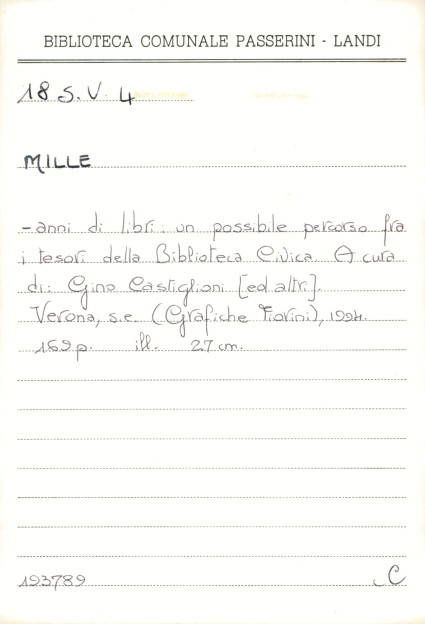 BIBLIOTECA COMUNALE PASSERINI - LANDI
18 S.V. 4
MILLE
- anni di libri: un possibile percorso fra
i tesori della Biblioteca Civica. A cura
di: Gino Castiglioni [ed altri].
Verona, s.e. (Grafiche Fiorini), 1994.
169 p. ill. 27 cm.
193789 C